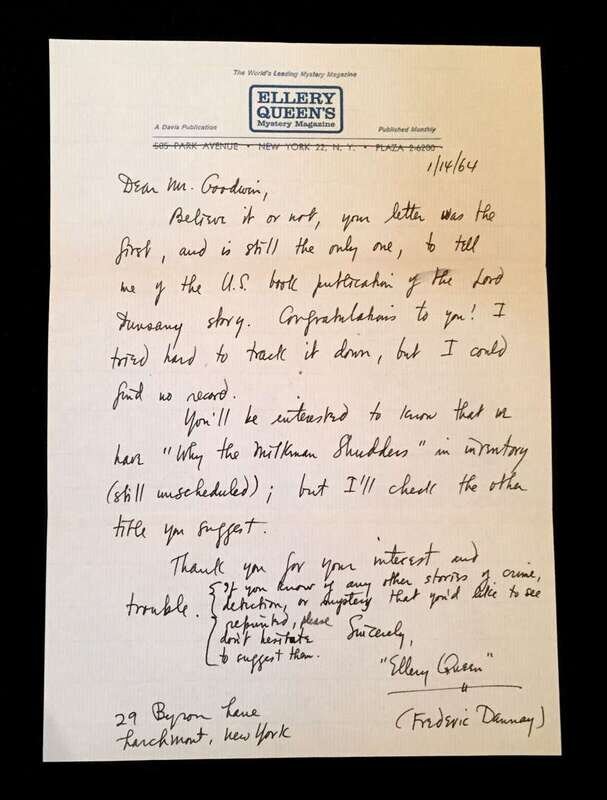 The World's Leading Mystery Magazine
ELLERY
QUEEN'S
Mystery Magazine
A Davis Publication
Published Monthly
505 PARK AVENUE • NEW YORK 22, N. Y. • PLAZA 2-6200
1/14/64
Dear Mr. Goodwin,
Believe it or not, your letter was the
first, and is still the only one, to tell
me of the U.S. book publication of the Lord
Dunsany story. Congratulations to you! I
tried hard to track it down, but I could
find no record.
You'll be interested to know that we
have "Why the Milkman Shudders" in inventory
(still unscheduled); but I'll check the other
title you suggest.
Thank you for your interest and
trouble.
If you know of any other stories of crime,
detection, or mystery that you'd like to see
reprinted, please
don't hesitate
to suggest them.
Sincerely,
"Ellery Queen"
(Frederic Dannay)
29 Byron Lane
Larchmont, New York